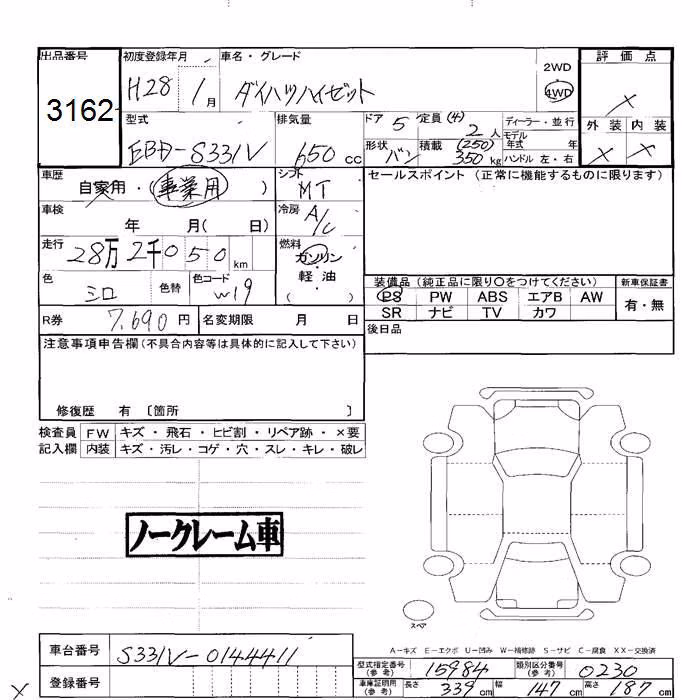 出品番号 初度登録年月 車名・グレード 評価点
3162 H28 1月 ダイハツハイゼット 2WD
4WD ×
型式 排気量 ドア 5 定員(4) 2人 ディーラー・並行 外装 内装
EBD-S331V 650cc 形状 バン 積載 (250) 350kg モデル年式 年 × ×
ハンドル 左・右
車歴 自家用・(事業用) シフト MT セールスポイント(正常に機能するものに限ります)
車検 年 月( 日) 冷房 A/C
走行 28万2千050km 燃料 ガソリン
軽・油
( )
色 シロ 色替 色コード W19 装備品(純正品に限り○をつけてください) 新車保証書
PS PW ABS エアB AW 有・無
SR ナビ TV カワ
R券 7,690円 名変期限 月 日 後日品
注意事項申告欄(不具合内容等は具体的に記入して下さい)
修復歴 有 〔箇所 〕
検査員 FW キズ・飛石・ヒビ割・リペア跡・×要
記入欄 内装 キズ・汚レ・コゲ・穴・スレ・キレ・破レ
ノークレーム車
スペア
A-キズ E-エクボ U-凹み W-補修跡 S-サビ C-腐食 XX-交換済
車台番号 S331V-0144411
登録番号
型式指定番号(参考) 15984 類別区分番号(参考) 0230
車庫証明用(参考) 長さ 339cm 幅 147cm 高さ 187cm
×